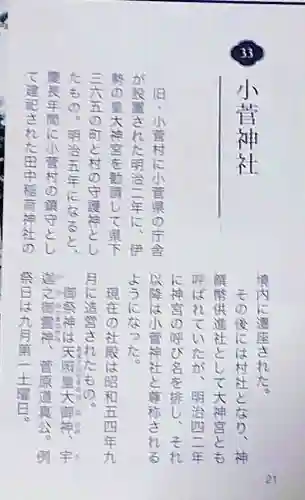 33
小菅神社
旧・小菅村に小菅県の庁舎
が設置された明治二年に、伊
勢の皇大神宮を勧請して県下
三六五の町と村の守護神とし
たもの。明治五年になると、
慶長年間に小菅村の鎮守とし
て建祀された田中稲荷神社の
境内に遷座された。
その後には村社となり、神
饌幣供進社として大神宮とも
呼ばれていたが、明治四二年
に神宮の呼び名を排し、それ
以降は小菅神社と尊称される
ようになった。
現在の社殿は昭和五四年九
月に造営されたもの。
御祭神は天照皇大御神、宇
迦之御霊神、菅原道真公。例
祭日は九月第二土曜日。
21